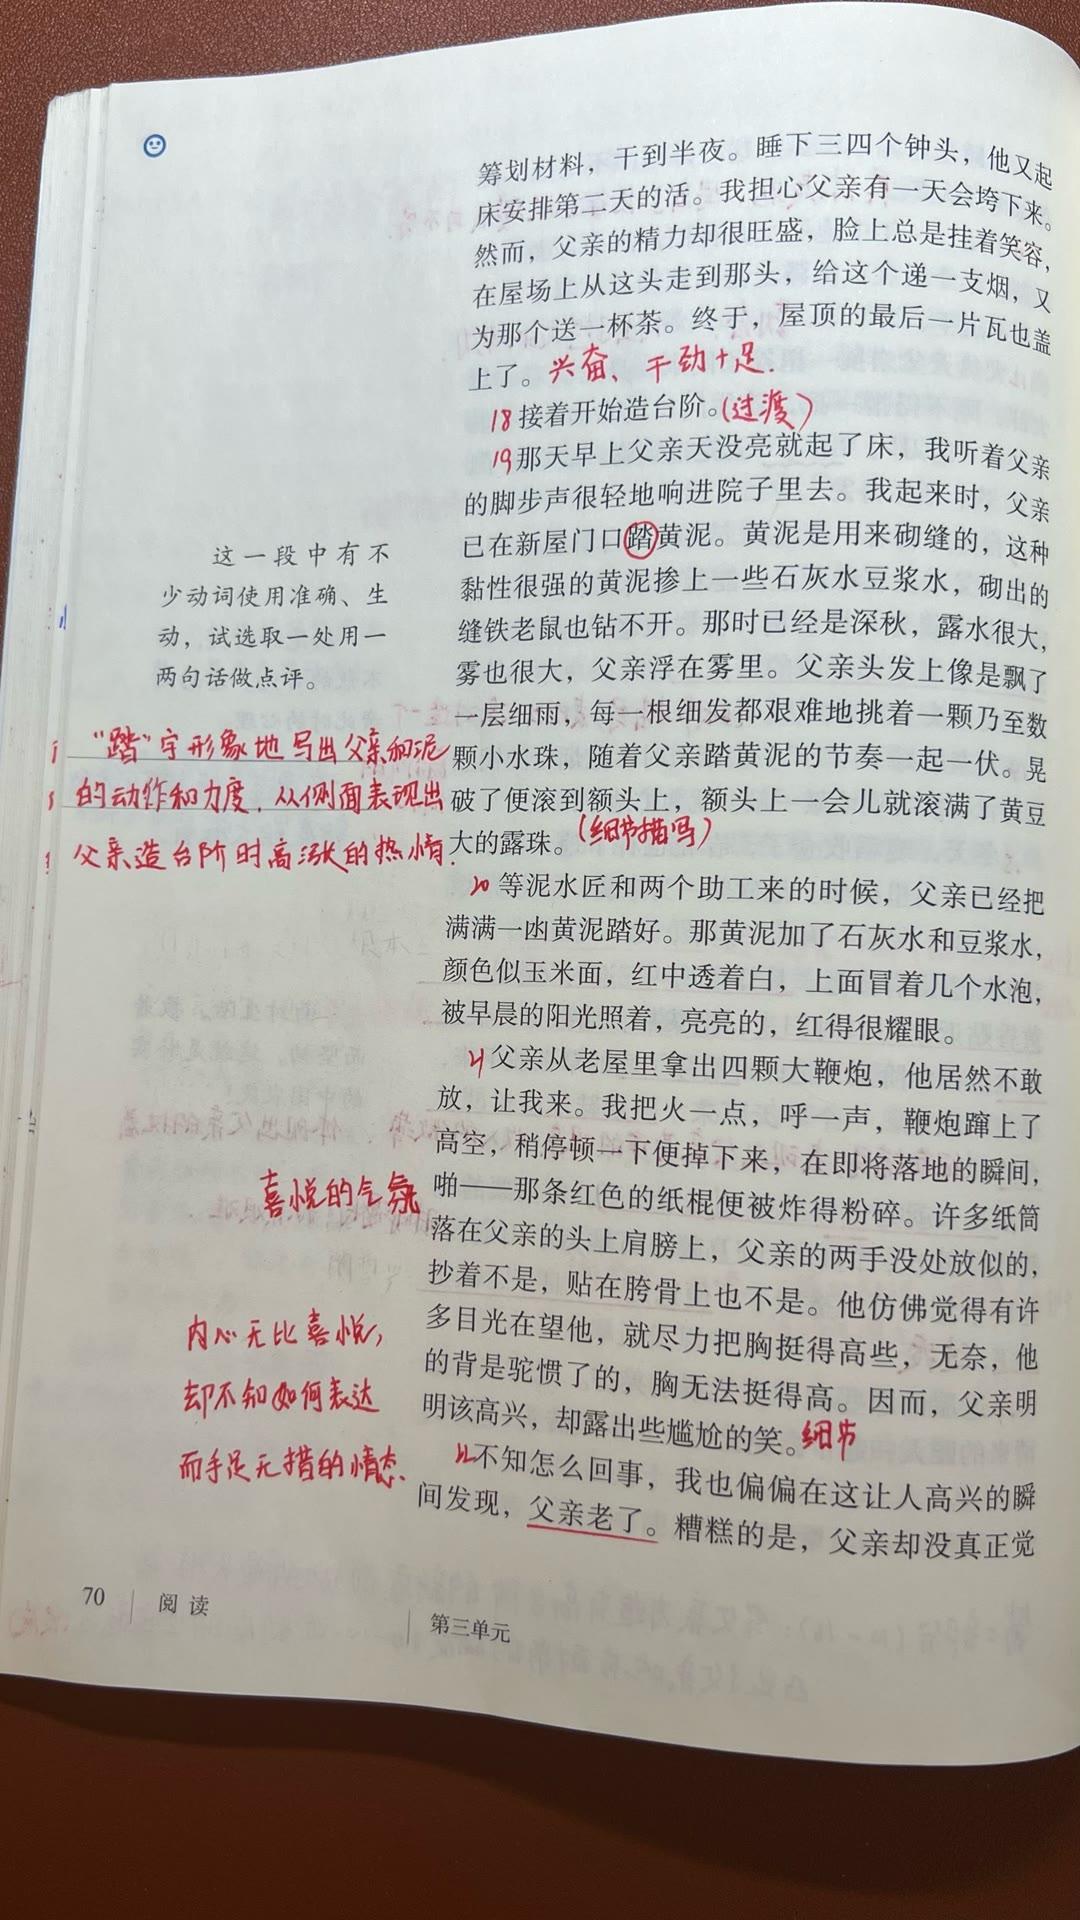 筹划材料，干到半夜。睡下三四个钟头，他又起
床安排第二天的活。我担心父亲有一天会垮下来。
然而，父亲的精力却很旺盛，脸上总是挂着笑容，
在屋场上从这头走到那头，给这个递一支烟，又
为那个送一杯茶。终于，屋顶的最后一片瓦也盖
上了。兴奋、干劲十足.
18接着开始造台阶。(过渡)
19那天早上父亲天没亮就起了床，我听着父亲
的脚步声很轻地响进院子里去。我起来时，父亲
已在新屋门口踏黄泥。黄泥是用来砌缝的，这种
黏性很强的黄泥掺上一些石灰水豆浆水，砌出的
缝铁老鼠也钻不开。那时已经是深秋，露水很大，
雾也很大，父亲浮在雾里。父亲头发上像是飘了
一层细雨，每一根细发都艰难地挑着一颗乃至数
颗小水珠，随着父亲踏黄泥的节奏一起一伏。晃
破了便滚到额头上，额头上一会儿就滚满了黄豆
大的露珠。(细节描写)
这一段中有不
少动词使用准确、生
动，试选取一处用一
两句话做点评。
“踏”字形象地写出父亲和泥
的动作和力度，从侧面表现出
父亲造台阶时高涨的热情.
20等泥水匠和两个助工来的时候，父亲已经把
满满一凼黄泥踏好。那黄泥加了石灰水和豆浆水，
颜色似玉米面，红中透着白，上面冒着几个水泡，
被早晨的阳光照着，亮亮的，红得很耀眼。
21父亲从老屋里拿出四颗大鞭炮，他居然不敢
放，让我来。我把火一点，呼一声，鞭炮蹿上了
高空，稍停顿一下便掉下来，在即将落地的瞬间，
啪——那条红色的纸棍便被炸得粉碎。许多纸筒
落在父亲的头上肩膀上，父亲的两手没处放似的，
抄着不是，贴在胯骨上也不是。他仿佛觉得有许
多目光在望他，就尽力把胸挺得高些，无奈，他
的背是驼惯了的，胸无法挺得高。因而，父亲明
明该高兴，却露出些尴尬的笑。细节
喜悦的气氛
内心无比喜悦，
却不知如何表达
而手足无措的情态.
22不知怎么回事，我也偏偏在这让人高兴的瞬
间发现，父亲老了。糟糕的是，父亲却没真正觉
70 阅读
第三单元